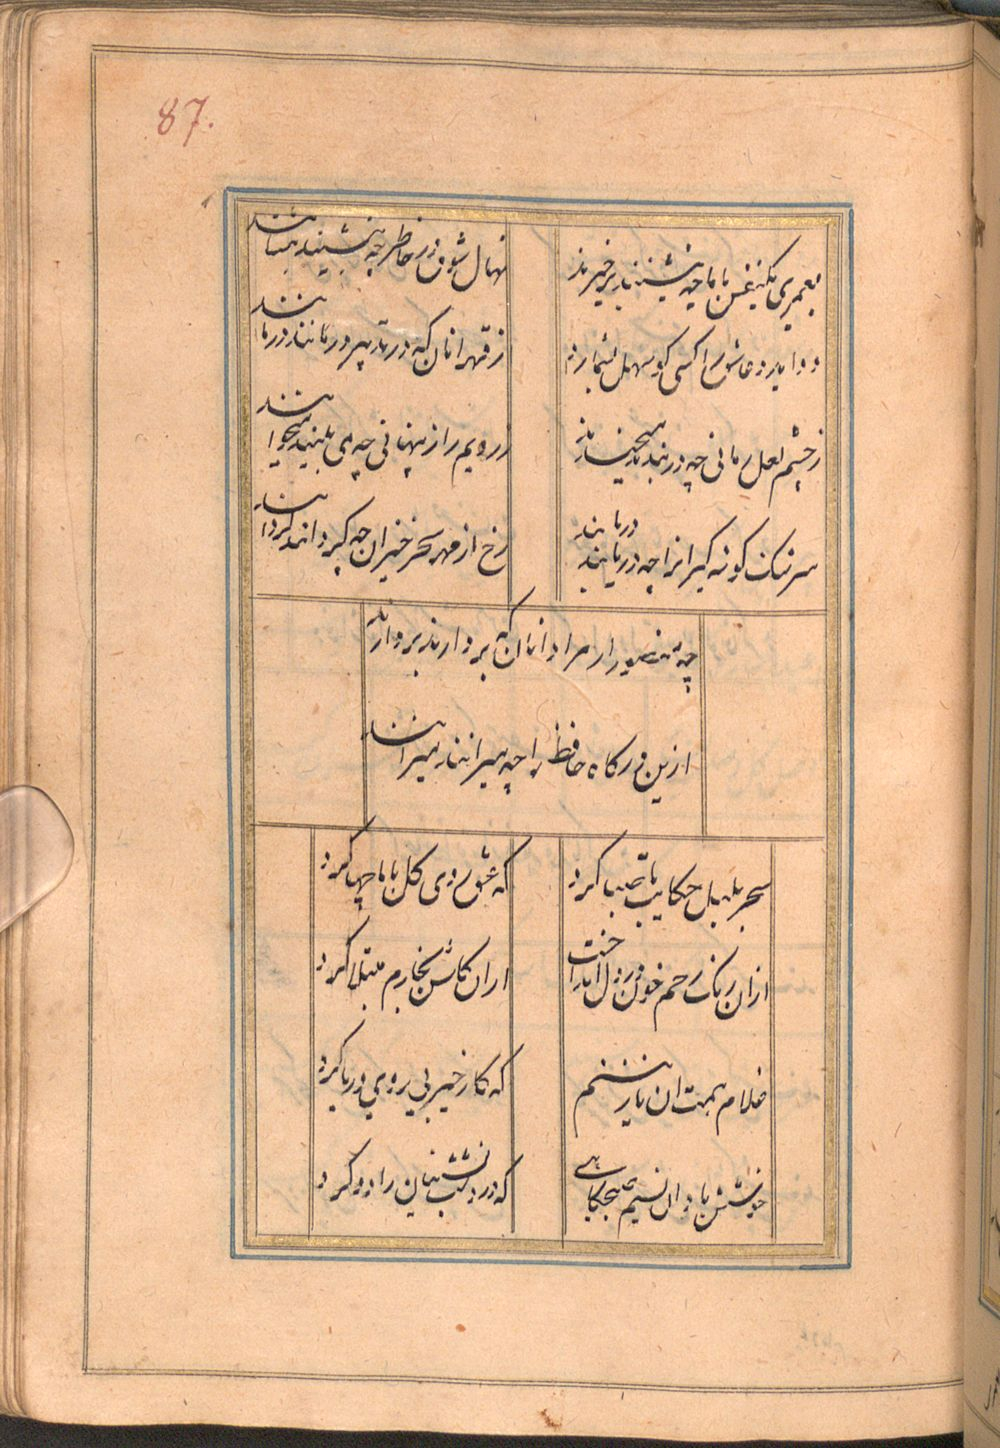 87.
بعمری یکنفس با ما چو بنشینند برخیزند
نهال شوق در خاطر چو بنشینند بنشانند
دوا یدرد عاشق را کسی کو سهل پندارد
ز فکر انان که در تدبیر درمانند درمانند
ز چشم لعل رمانی چو در بندند میخندند
ز رویم راز پنهانی چو می بینند میخوانند
سرشک گوشه گیرانرا چو دریابند دریابند
رخ از مهر سحر خیزان چو گردانند گردانند
چو منصور از مراد انان که بردارند بردارند
ازین درگاه حافظ را چو میرانند میرانند
سحر بلبل حکایت با صبا کرد
که عشق روی گل با ما چها کرد
ازان رنگ رخم خون در دل انداخت
ازان گلشن بخارم مبتلا کرد
غلام همت ان نازنینم
که کار خیر بی روی و ریا کرد
خوشش باد ان نسیم صبحگاهی
که درد شب نشینان را دوا کرد